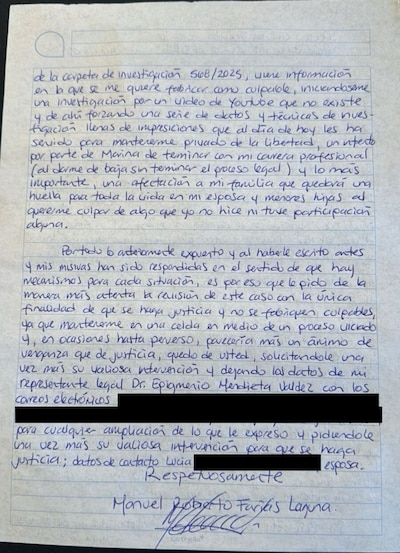 de la carpeta de investigación 568/2025, viene información
en lo que se me quiere fabricar como culpable, iniciandoseme
una investigación por un video de Youtube que no existe
y de ahí forzando una serie de datos y técnicas de inves-
tigación llenas de impresiciones que al día de hoy les ha
servido para mantenerme privado de la libertad, un efecto
por parte de Marina de terminar con mi carrera profesional
(al darme de baja sin terminar el proceso legal) y lo más
importante, una afectación a mi familia que quedará una
huella para toda la vida en mi esposa y menores hijas al
quererme culpar de algo que yo no hice ni tuve participación
alguna.
Por todo lo anteriormente expuesto y al haberle escrito antes
y mis misivas han sido respondidas en el sentido de que hay
mecanismos para cada situación, es por eso que le pido de la
manera más atenta la revisión de este caso con la única
finalidad de que se haga justicia y no se fabriquen culpables,
ya que mantenerme en una celda en medio de un proceso viciado
y, en ocasiones hasta perverso, parecería más un ánimo de
venganza que de justicia, quedo de usted, solicitandole una
vez más su valiosa intervención y dejando los datos de mi
representante legal Dr. Epigmenio Mendieta Valdez con los
correos electrónicos
para cualquier ampliación de lo que le expreso y pidiendole
una vez más su valiosa intervención para que se haga
justicia; datos de contacto Lucia esposa.
Respetuosamente
Manuel Roberto Farías Laguna.